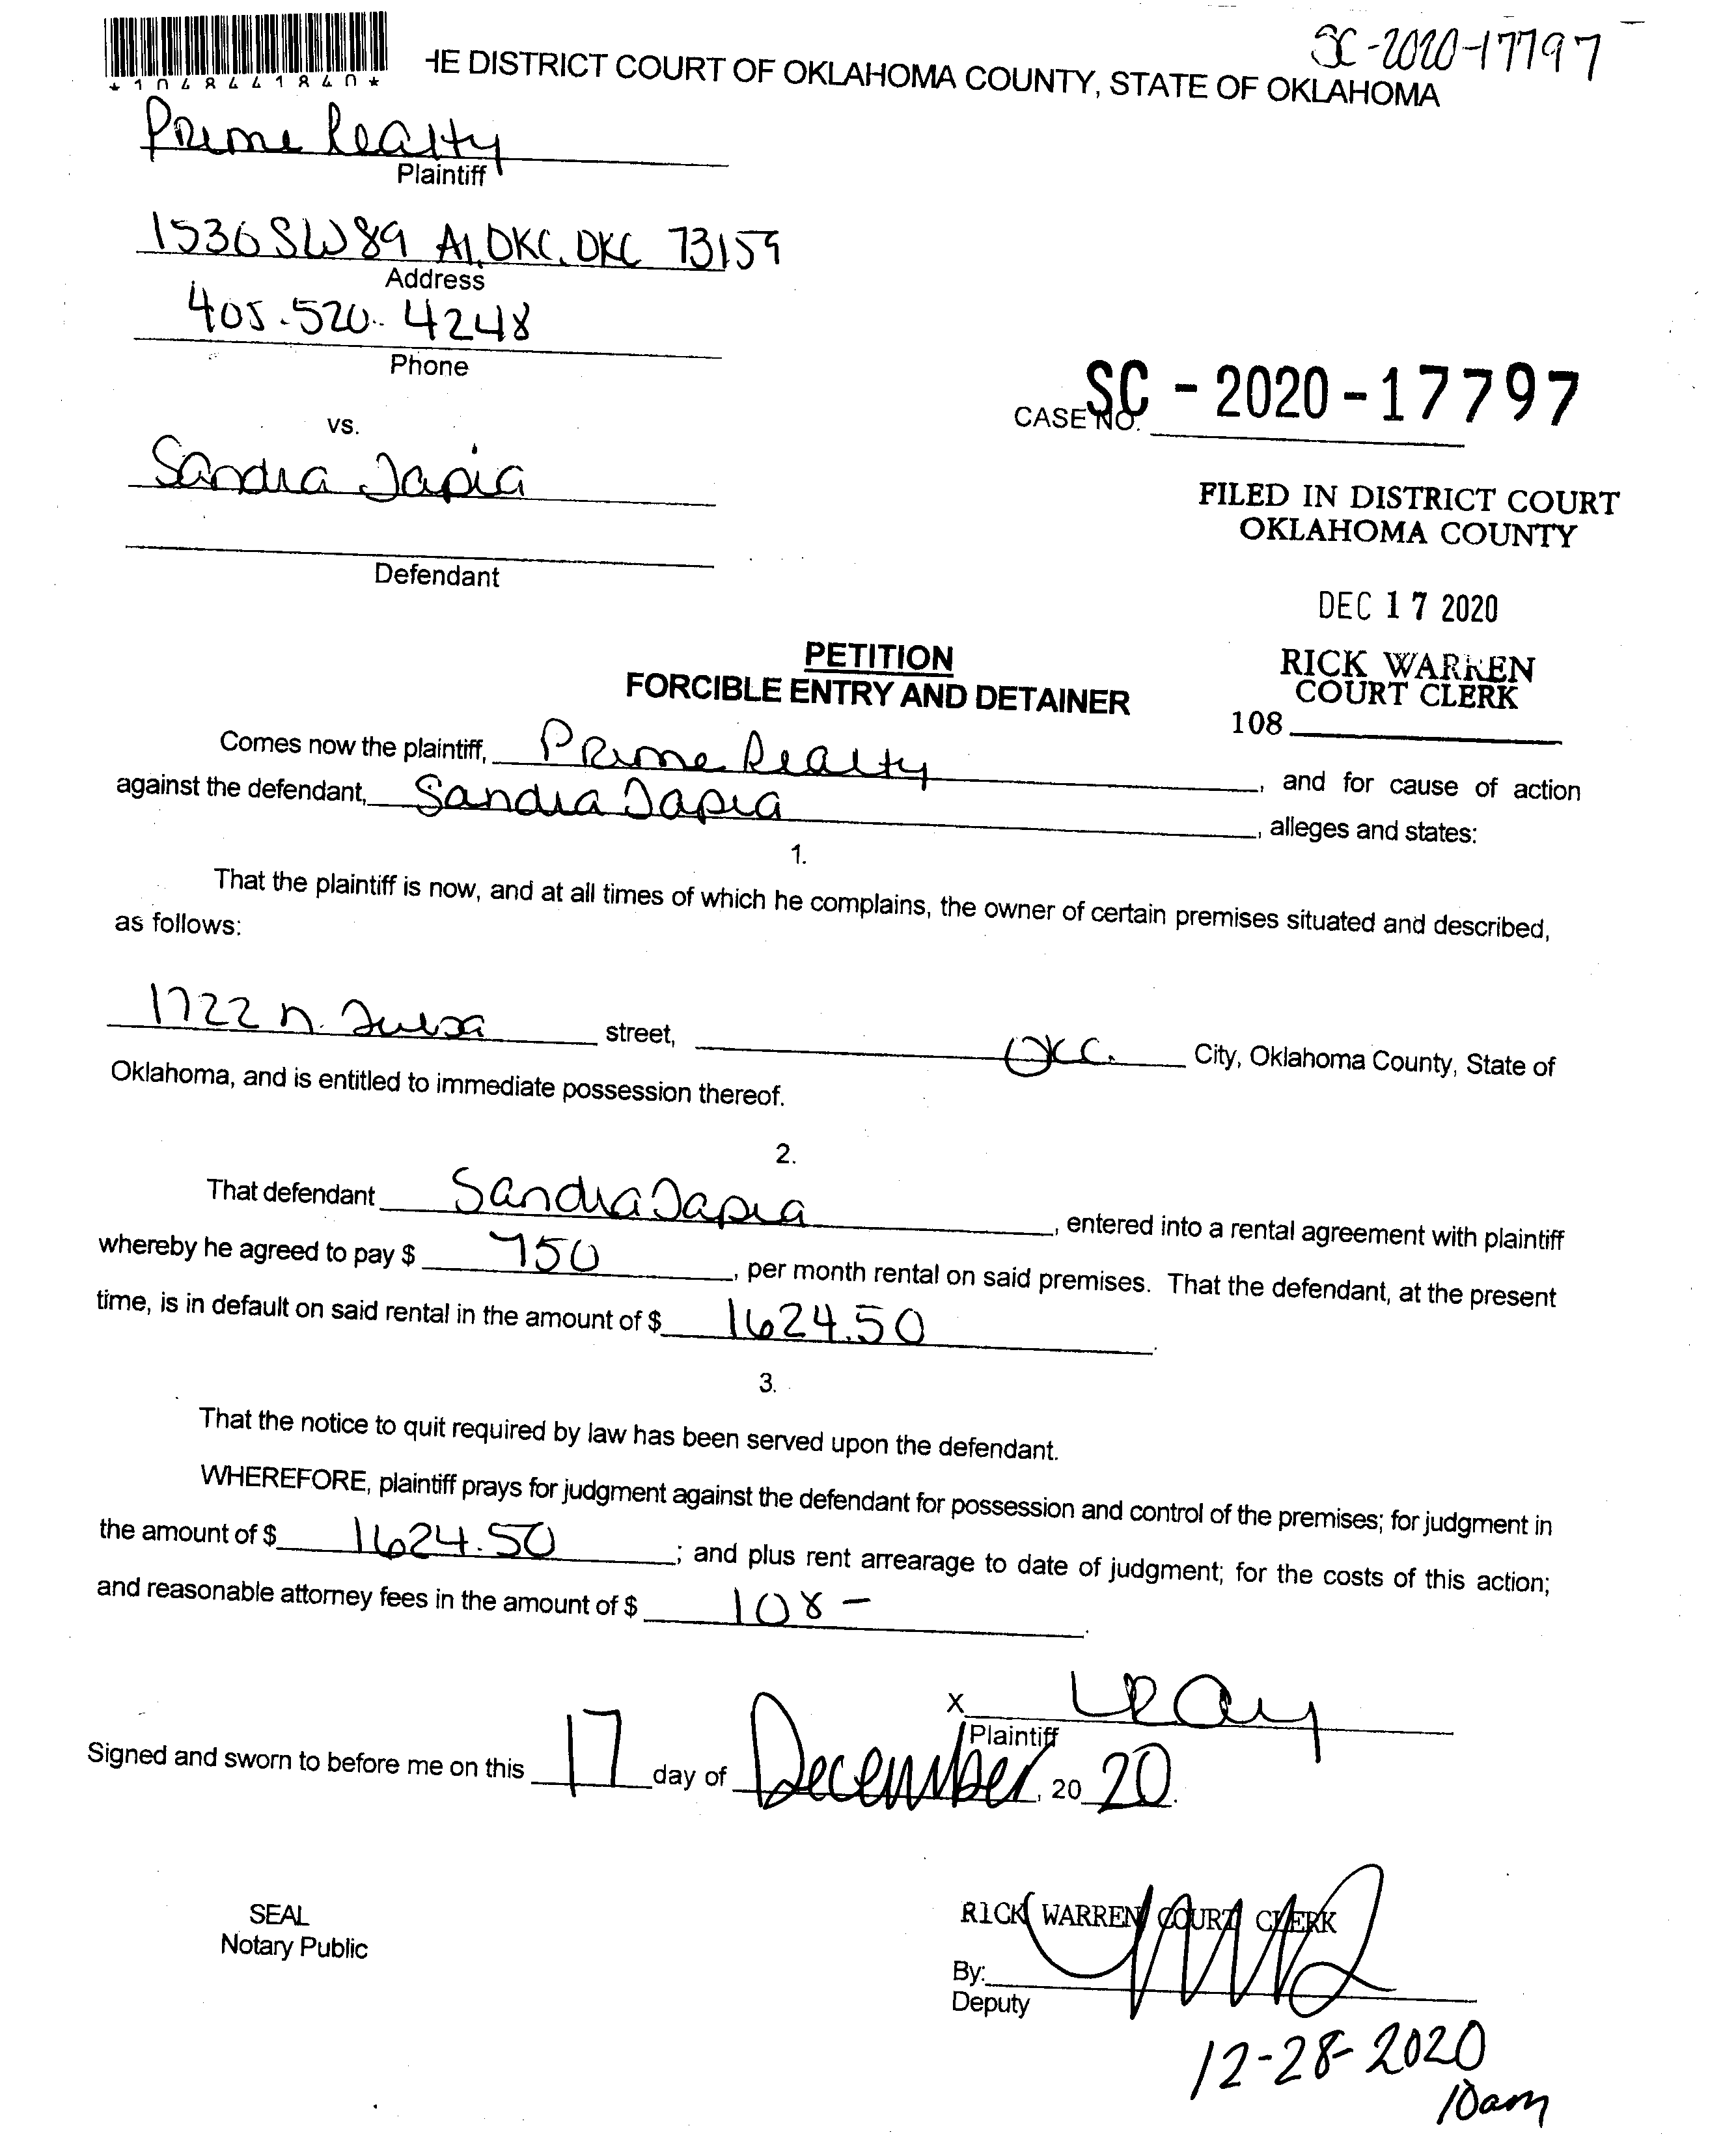 SC-2020-17797
HE DISTRICT COURT OF OKLAHOMA COUNTY, STATE OF OKLAHOMA
*1048441840*
Prime Realty
Plaintiff
1536 SW 89 A1, OKC, OKC 73159
Address
405.520.4248
Phone
vs.
CASE NO. SC-2020-17797
Sandra Tapia
Defendant
FILED IN DISTRICT COURT
OKLAHOMA COUNTY
DEC 17 2020
RICK WARREN
COURT CLERK
108
PETITION
FORCIBLE ENTRY AND DETAINER
Comes now the plaintiff, Prime Realty, and for cause of action
against the defendant, Sandra Tapia, alleges and states:
1.
That the plaintiff is now, and at all times of which he complains, the owner of certain premises situated and described,
as follows:
1722 N. Tulsa street, OKC. City, Oklahoma County, State of
Oklahoma, and is entitled to immediate possession thereof.
2.
That defendant Sandra Tapia, entered into a rental agreement with plaintiff
whereby he agreed to pay $ 750, per month rental on said premises. That the defendant, at the present
time, is in default on said rental in the amount of $ 1624.50.
3.
That the notice to quit required by law has been served upon the defendant.
WHEREFORE, plaintiff prays for judgment against the defendant for possession and control of the premises; for judgment in
the amount of $ 1624.50; and plus rent arrearage to date of judgment; for the costs of this action;
and reasonable attorney fees in the amount of $ 108-.
X
Plaintiff
Signed and sworn to before me on this 17 day of December, 20 20.
SEAL
Notary Public
RICK WARREN COURT CLERK
By:
Deputy
12-28-2020
10am